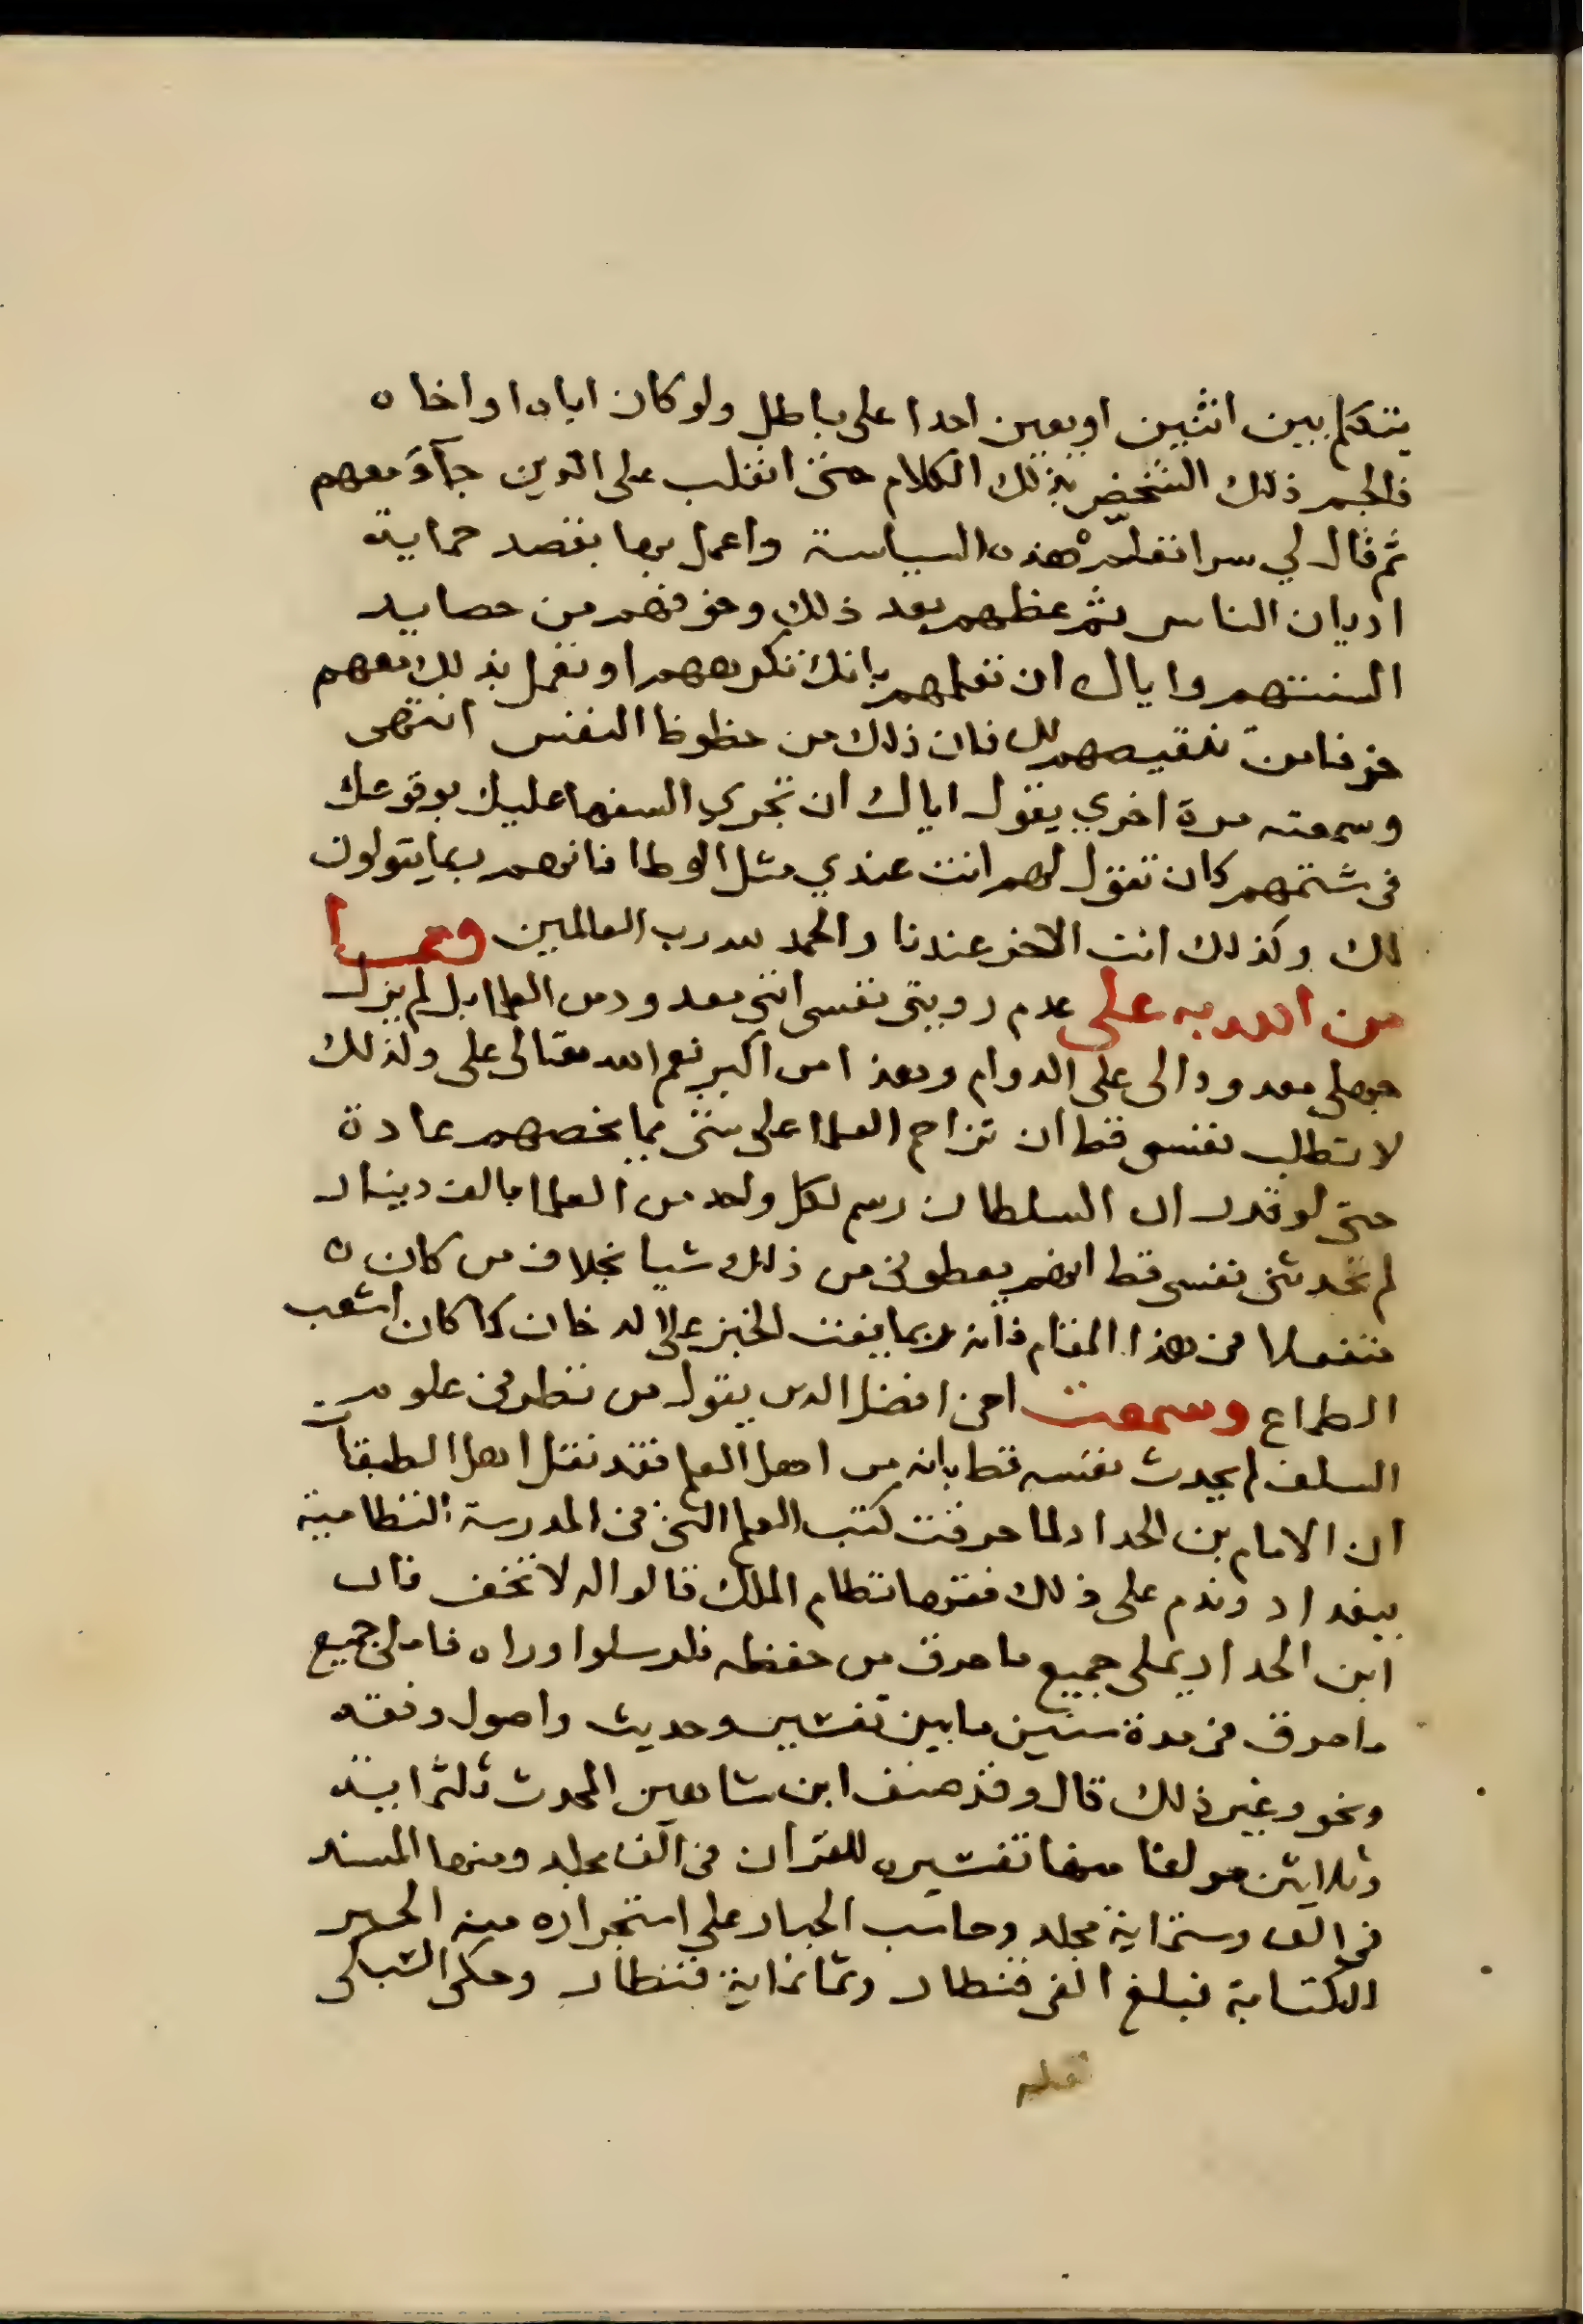 يتكلم بين اثنين او يعين احدا على باطل ولو كان اباه او اخاه
فالجم ذلك الشخص بذلك الكلام حتى انقلب على الذين جآؤ معهم
ثم قال لي سرا تعلم هذه السياسة واعمل بها بقصد حماية
اديان الناس ثم عظهم بعد ذلك وخوفهم من حصايد
السنتهم واياك ان تعلمهم بانك تكرههم او تفعل بذلك معهم
خوفا من تنقيصهم لك فان ذلك من حظوظ النفس انتهى
وسمعته مرة اخري يقول اياك ان تجري السفها عليك بوقوعك
في شتمهم كان تقول لهم انت عندي مثل الوطا فانهم بما يقولون
لك وكذلك انت الاخر عندنا والحمد لله رب العالمين ومما
من الله به على عدم رويتي نفسي انني معدود من العلما بل لم يزل
جهلي معدودا لي على الدوام وهذا من اكبر نعم الله تعالى على ولذلك
لا تطلب نفسي قط ان تزاحم العلما على شي مما يخصهم عادة
حتى لو قدر ان السلطان رسم لكل واحد من العلما بالف دينار
لم تحدثني نفسي قط انهم يعطوني من ذلك شيا بخلاف من كان
متفعلا في هذا المقام فانه ربما يفت الخبز على الدخان كما كان اشعب
الطماع وسمعت اخي افضل الدين يقول من نظر في علوم
السلف لم يحدث نفسه قط بانه من اهل العلم فقد نقل اهل الطبقات
ان الامام بن الحداد لما حرقت كتب العلم التي في المدرسة النظامية
ببغداد وندم على ذلك فقرها نظام الملك قالوا له لا تخف فان
ابن الحداد يملى جميع ما حرق من حفظه فارسلوا وراه فاملى جميع
ما حرق في مدة سنين ما بين تفسير وحديث واصول وفقه
ونحو وغير ذلك قال وقد صنف ابن شاهين المحدث ثلثماية
وثلاثين مولفا منها تفسيره للقران في الف مجلد ومنها المسند
في الف وستماية مجلد وحاسب الحبار على استجراره منه الحبر
للكتابة فبلغ الفى قنطار وثمانماية قنطار وحكى الشبكى